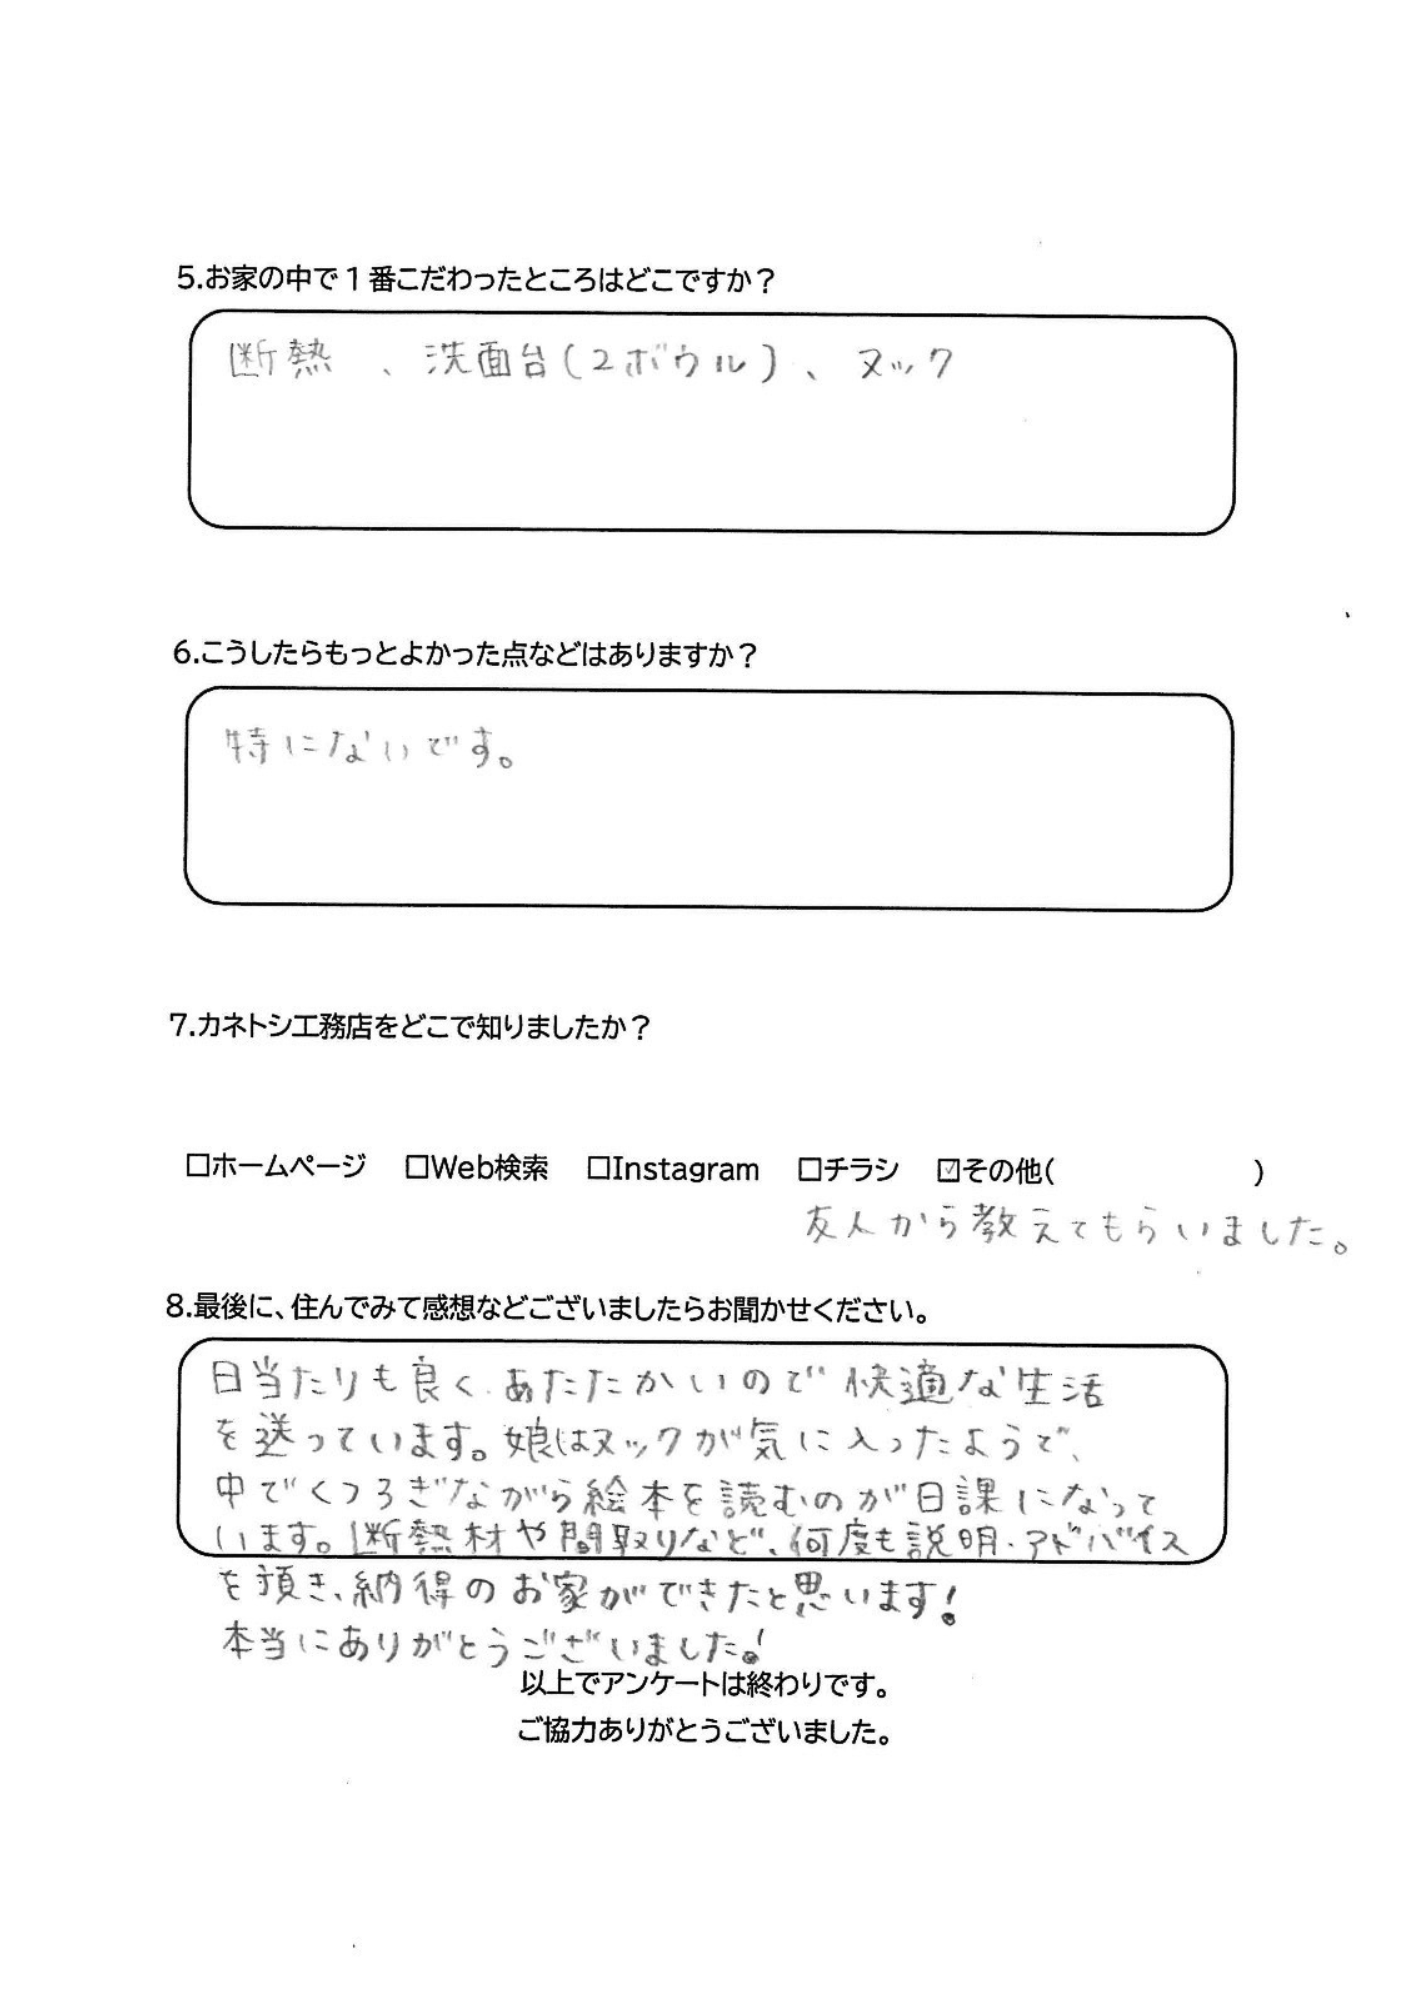 5.お家の中で1番こだわったところはどこですか？
断熱、洗面台(2ボウル)、ヌック
6.こうしたらもっとよかった点などはありますか？
特にないです。
7.カネトシ工務店をどこで知りましたか？
☐ホームページ ☐Web検索 ☐Instagram ☐チラシ ☑その他( )
友人から教えてもらいました。
8.最後に、住んでみて感想などございましたらお聞かせください。
日当たりも良く、あたたかいので快適な生活
を送っています。娘はヌックが気に入ったようで、
中でくつろぎながら絵本を読むのが日課になって
います。断熱材や間取りなど、何度も説明・アドバイス
を頂き、納得のお家ができたと思います！
本当にありがとうございました！
以上でアンケートは終わりです。
ご協力ありがとうございました。